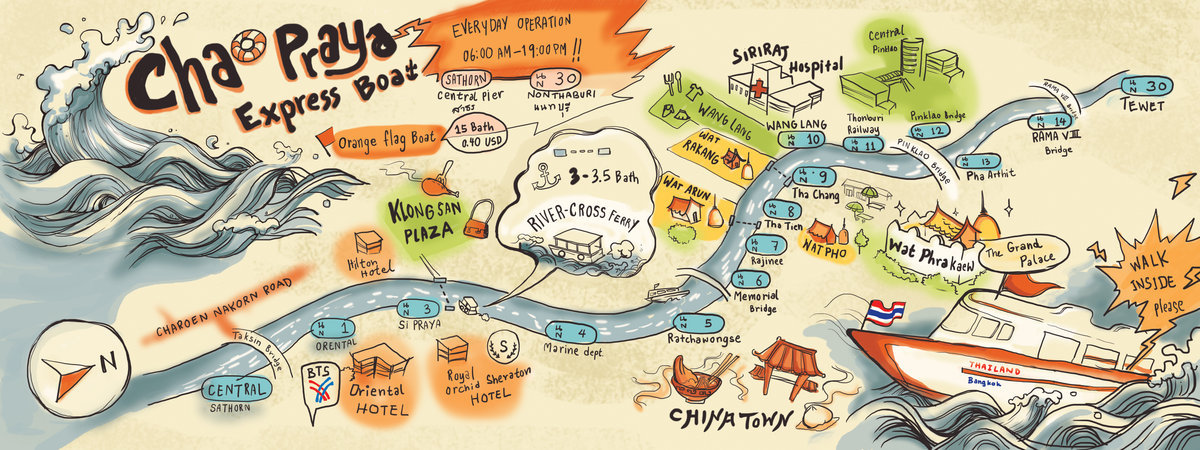 Chao Praya
Express Boat
EVERYDAY OPERATION
06:00 AM – 19:00 PM !!
SATHORN
Central Pier
สาธร
N 30
NONTHABURI
นนทบุรี
Orange flag Boat
15 Bath
0.40 USD
3 - 3.5 Bath
RIVER-CROSS FERRY
KLONG SAN
PLAZA
Hilton
Hotel
CHAROEN NAKORN ROAD
Taksin Bridge
N
CENTRAL
SATHORN
N 1
ORENTAL
BTS
Oriental
HOTEL
N 3
SI PRAYA
Royal
Orchid Sheraton
HOTEL
S
N 4
Marine dept.
N 5
Ratchawongse
CHINATOWN
N 6
Memorial
Bridge
N 7
Rajinee
N 8
Tha Tien
WAT PHO
WAT ARUN
N 9
Tha Chang
WAT
RAKANG
WANG LANG
WANG LANG
N 10
SIRIRAJ
Hospital
Thonburi
Railway
N 11
Central
Pinklao
Pinklao Bridge
N 12
PINKLAO BRIDGE
N 13
Pha Arthit
RAMA VIII Bridge
N 14
RAMA VIII
Bridge
N 30
TEWET
Wat Phra kaew
The Grand
Palace
WALK
INSIDE
please
THAILAND
Bangkok